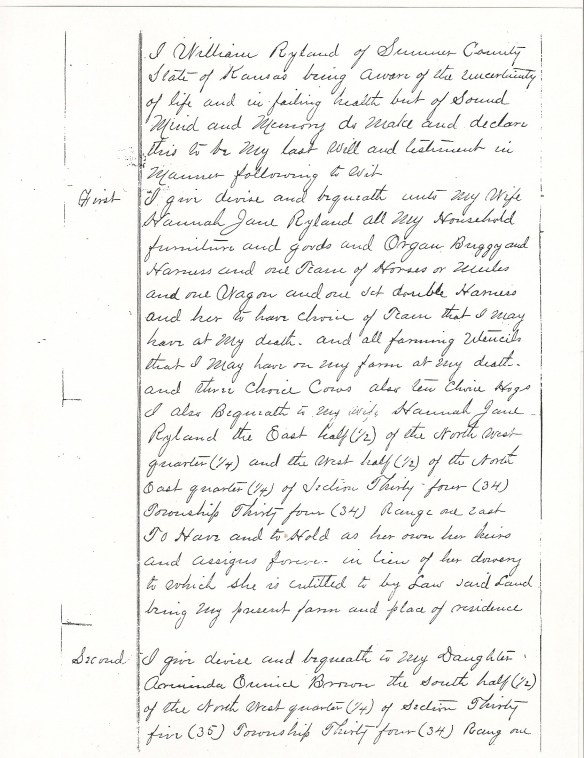 I William Ryland of Sumner County
State of Kansas being aware of the uncertinty
of life and in failing health but of Sound
Mind and Memory do Make and declare
this to be My last Will and testiment in
Manner following to Wit
First I give divise and bequeath unto My Wife
Hannah Jane Ryland all My Household
furniture and goods and Organ Buggy and
Harness and one Team of Horses or Mules
and one Wagon and one set double Harness
and her to have choice of Team that I May
have at My death. and all farming Utencils
that I May have on my farm at My death.
and three Choice Cows also ten Choice Hogs
I also Bequeath to My Wife Hannah Jane
Ryland the East half (1/2) of the North West
quarter (1/4) and the West half (1/2) of the North
East quarter (1/4) of Section Thirty four (34)
Township Thirty four (34) Range one east
To Have and to Hold as her own her heirs
and assigns forever in lieu of her dowery
to which she is entitled to by Law said Land
being My present farm and place of residence
Second I give divise and bequeath to My Daughter
Eunice Brown the South half (1/2)
of the North West quarter (1/4) of Section Thirty
five (35) Township Thirty four (34) Rang one